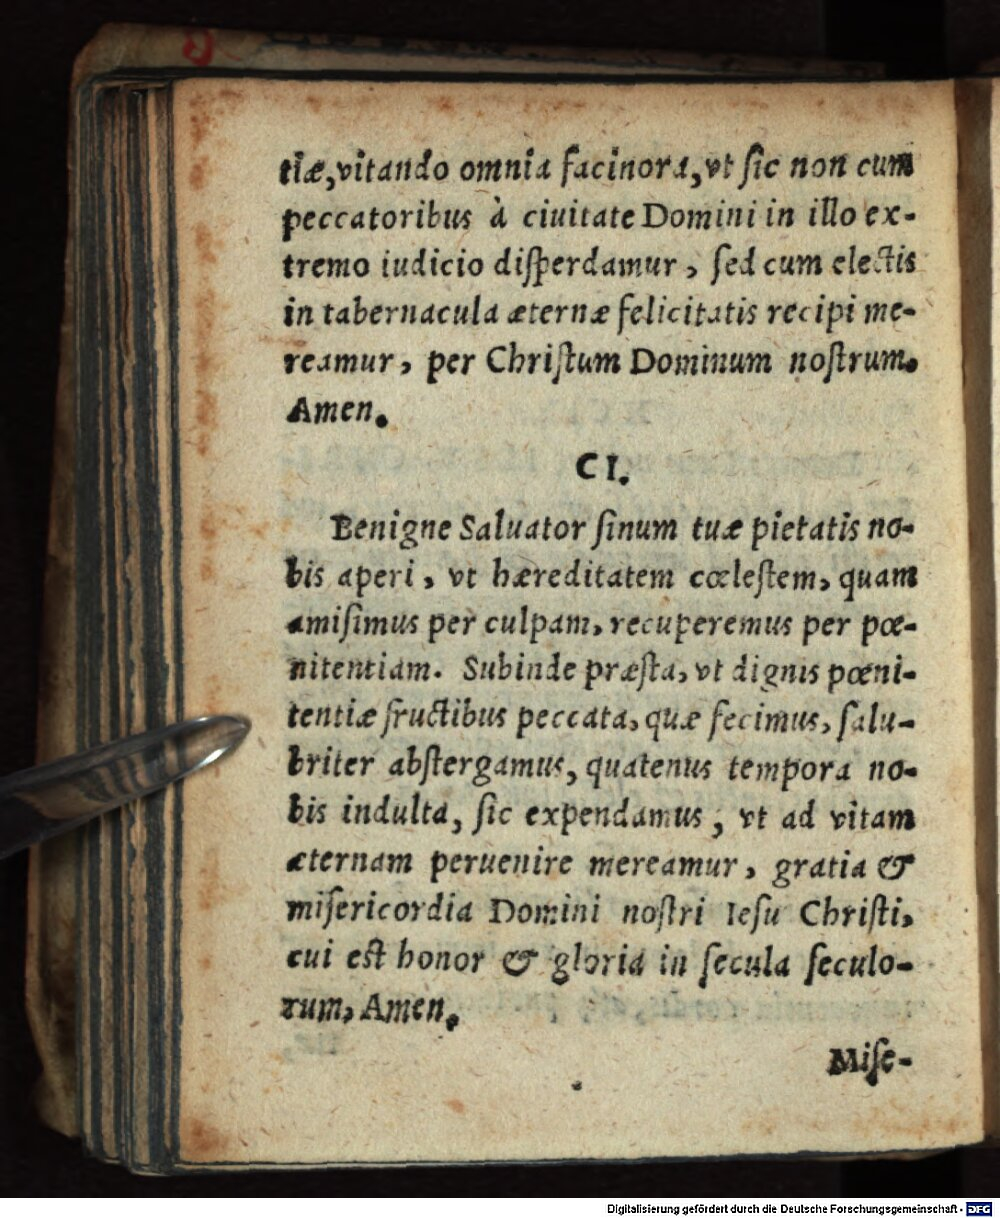 tiæ, vitando omnia facinora, vt ſic non cum
peccatoribus à ciuitate Domini in illo ex-
tremo iudicio diſperdamur, ſed cum electis
in tabernacula æternæ felicitatis recipi me-
reamur, per Chriſtum Dominum noſtrum.
Amen.
CI.
Benigne Saluator ſinum tuæ pietatis no-
bis aperi, vt hæreditatem cœleſtem, quam
amiſimus per culpam, recuperemus per pœ-
nitentiam. Subinde præſta, vt dignis pœni-
tentiæ fructibus peccata, quæ fecimus, ſalu-
briter abſtergamus, quatenus tempora no-
bis indulta, ſic expendamus, vt ad vitam
æternam peruenire mereamur, gratia &
miſericordia Domini noſtri Ieſu Chriſti,
cui eſt honor & gloria in ſecula ſeculo-
rum, Amen.
Miſe-
Digitalisierung gefördert durch die Deutsche Forschungsgemeinschaft - DFG